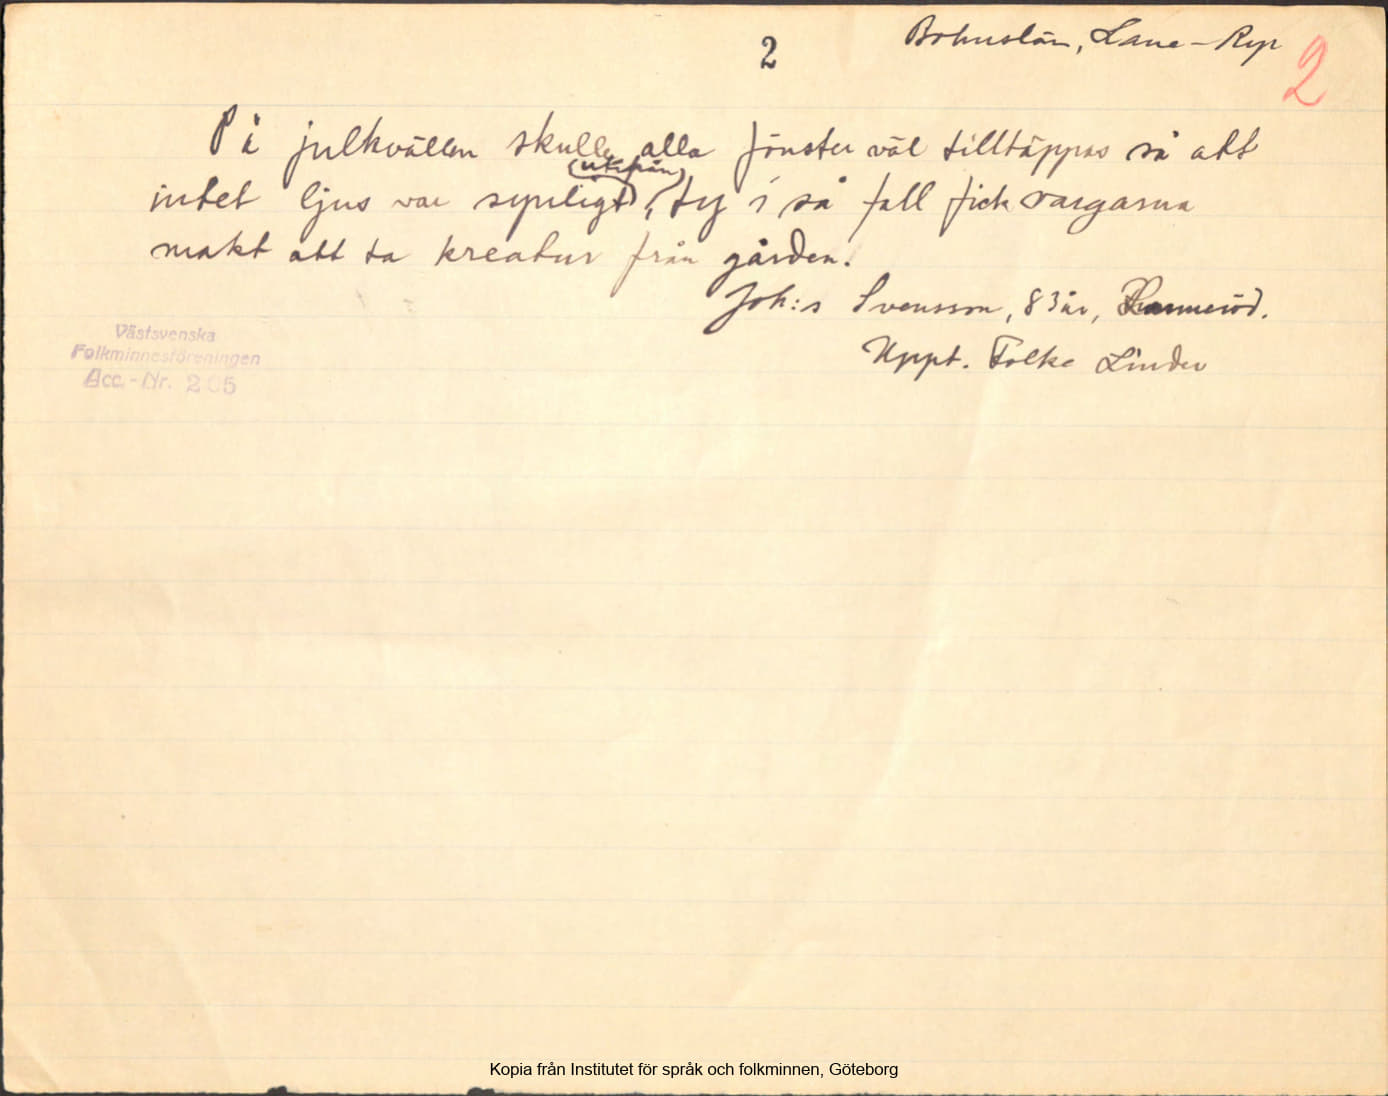 2
Bohuslän, Lane-Ryr
2
På julkvällen skulle alla fönster väl tilltäppas så att
utifrån
intet ljus var synligt, ty i så fall fick vargarna
makt att ta kreatur från gården.
Joh:s Svensson, 83 år,
Uppt. Folke Linder
Västsvenska
Folkminnesföreningen
Acc.-Nr. 205
Kopia från Institutet för språk och folkminnen, Göteborg